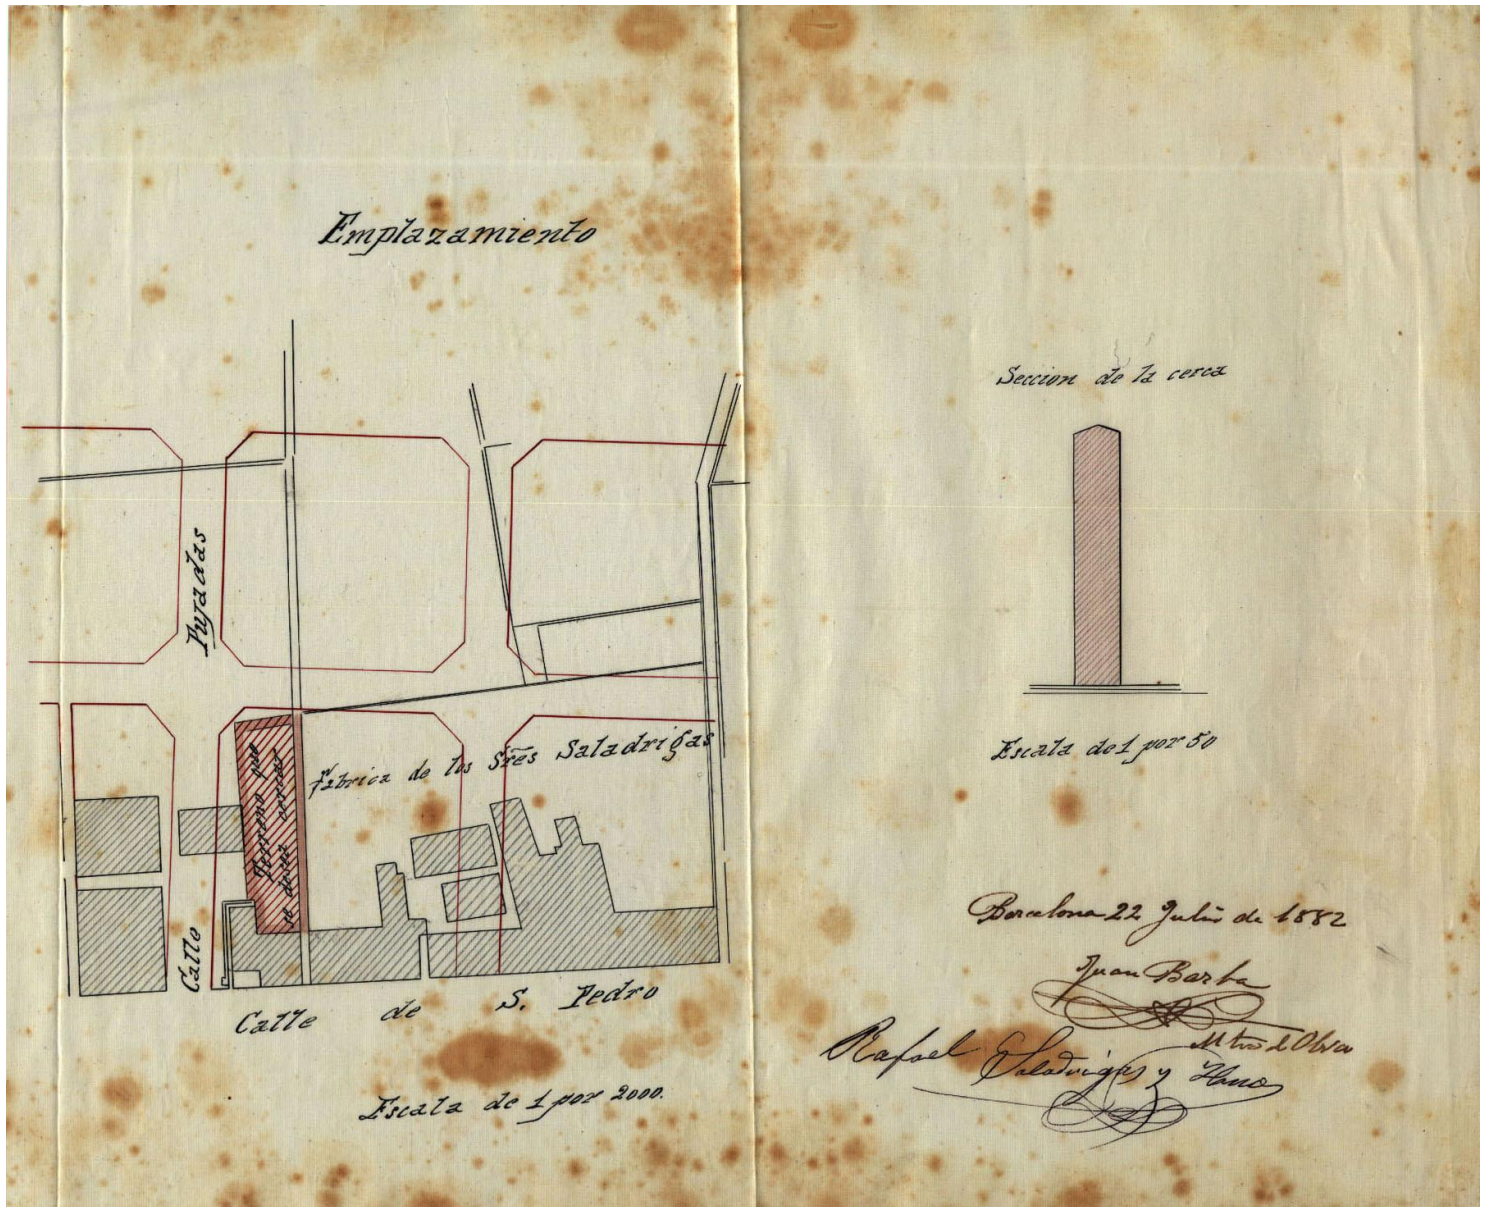 Emplazamiento
Pujadas
Calle
Terreno que
se desea cercar
Fábrica de los Sres Saladrigas
Calle de S. Pedro
Escala de 1 por 2000.
Seccion de la cerca
Escala de 1 por 50
Barcelona 22 Julio de 1882
Juan Barba
Mtro de Obra
Rafael Saladrigas y Hano